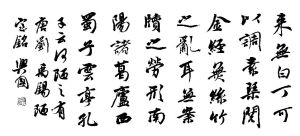 來無白丁可
以調素琴閱
金經無絲竹
之亂耳無案
牘之勞形南
陽諸葛廬西
蜀子雲亭孔
子云何陋之有
唐劉禹錫陋
室銘 興國